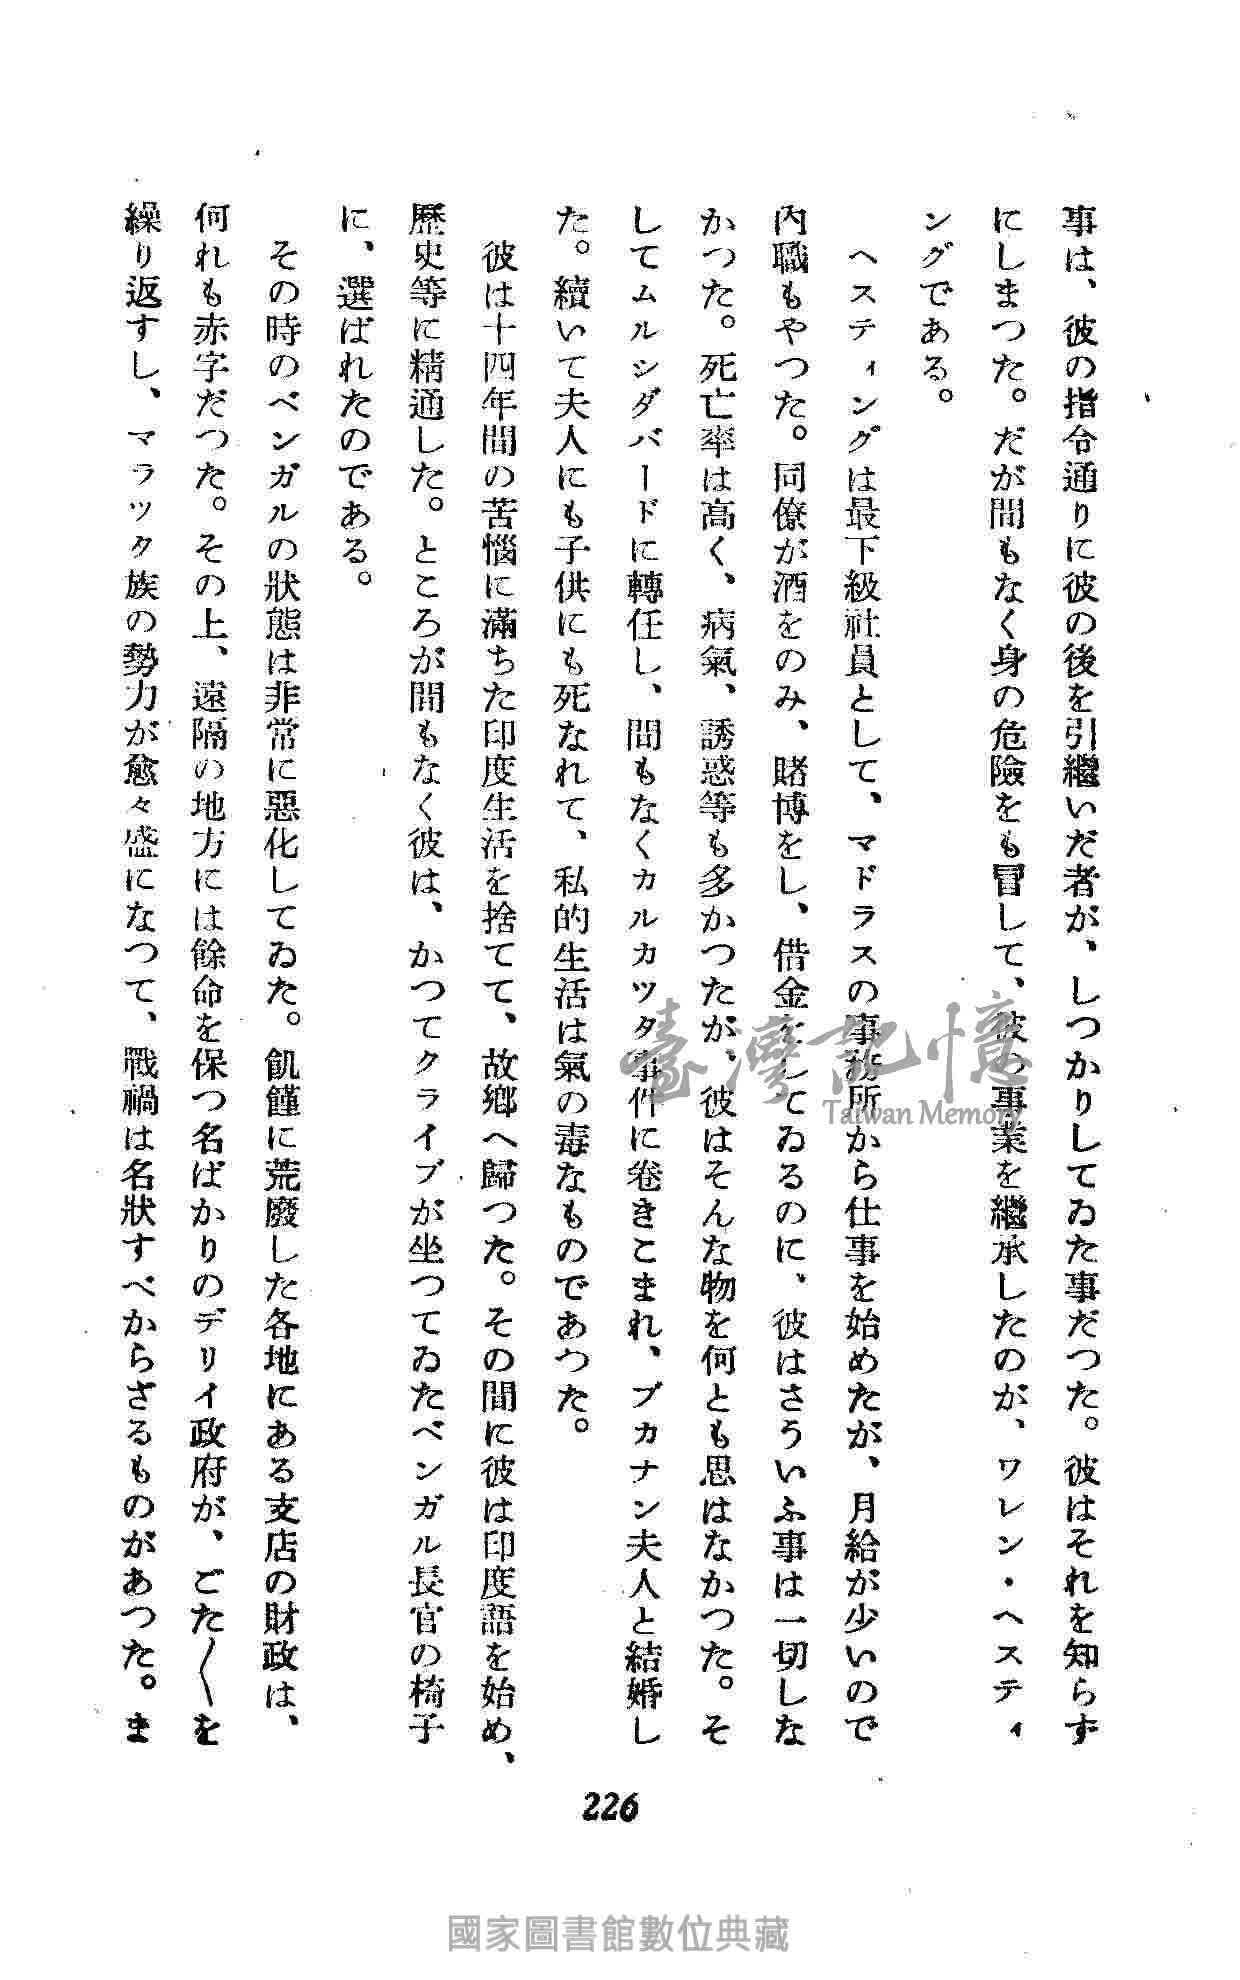 事は、彼の指令通りに彼の後を引繼いだ者が、しつかりしてゐた事だつた。彼はそれを知らず
にしまつた。だが間もなく身の危險をも冒して、彼の事業を繼承したのが、ワレン・ヘスティ
ングである。
ヘスティングは最下級社員として、マドラスの事務所から仕事を始めたが、月給が少いので
內職もやつた。同僚が酒をのみ、賭博をし、借金をしてゐるのに、彼はさういふ事は一切しな
かつた。死亡率は高く、病氣、誘惑等も多かつたが、彼はそんな物を何とも思はなかつた。そ
してムルシダバードに轉任し、間もなくカルカッタ事件に卷きこまれ、ブカナン夫人と結婚し
た。續いて夫人にも子供にも死なれて、私的生活は氣の毒なものであつた。
彼は十四年間の苦惱に滿ちた印度生活を捨てて、故鄕へ歸つた。その間に彼は印度語を始め、
歷史等に精通した。ところが間もなく彼は、かつてクライブが坐つてゐたベンガル長官の椅子
に、選ばれたのである。
その時のベンガルの狀態は非常に惡化してゐた。飢饉に荒廢した各地にある支店の財政は、
何れも赤字だつた。その上、遠隔の地方には餘命を保つ名ばかりのデリイ政府が、ごた〱を
繰り返すし、マラッタ族の勢力が愈々盛になつて、戰禍は名狀すべからざるものがあつた。ま
226
臺灣記憶
Taiwan Memory
國家圖書館數位典藏